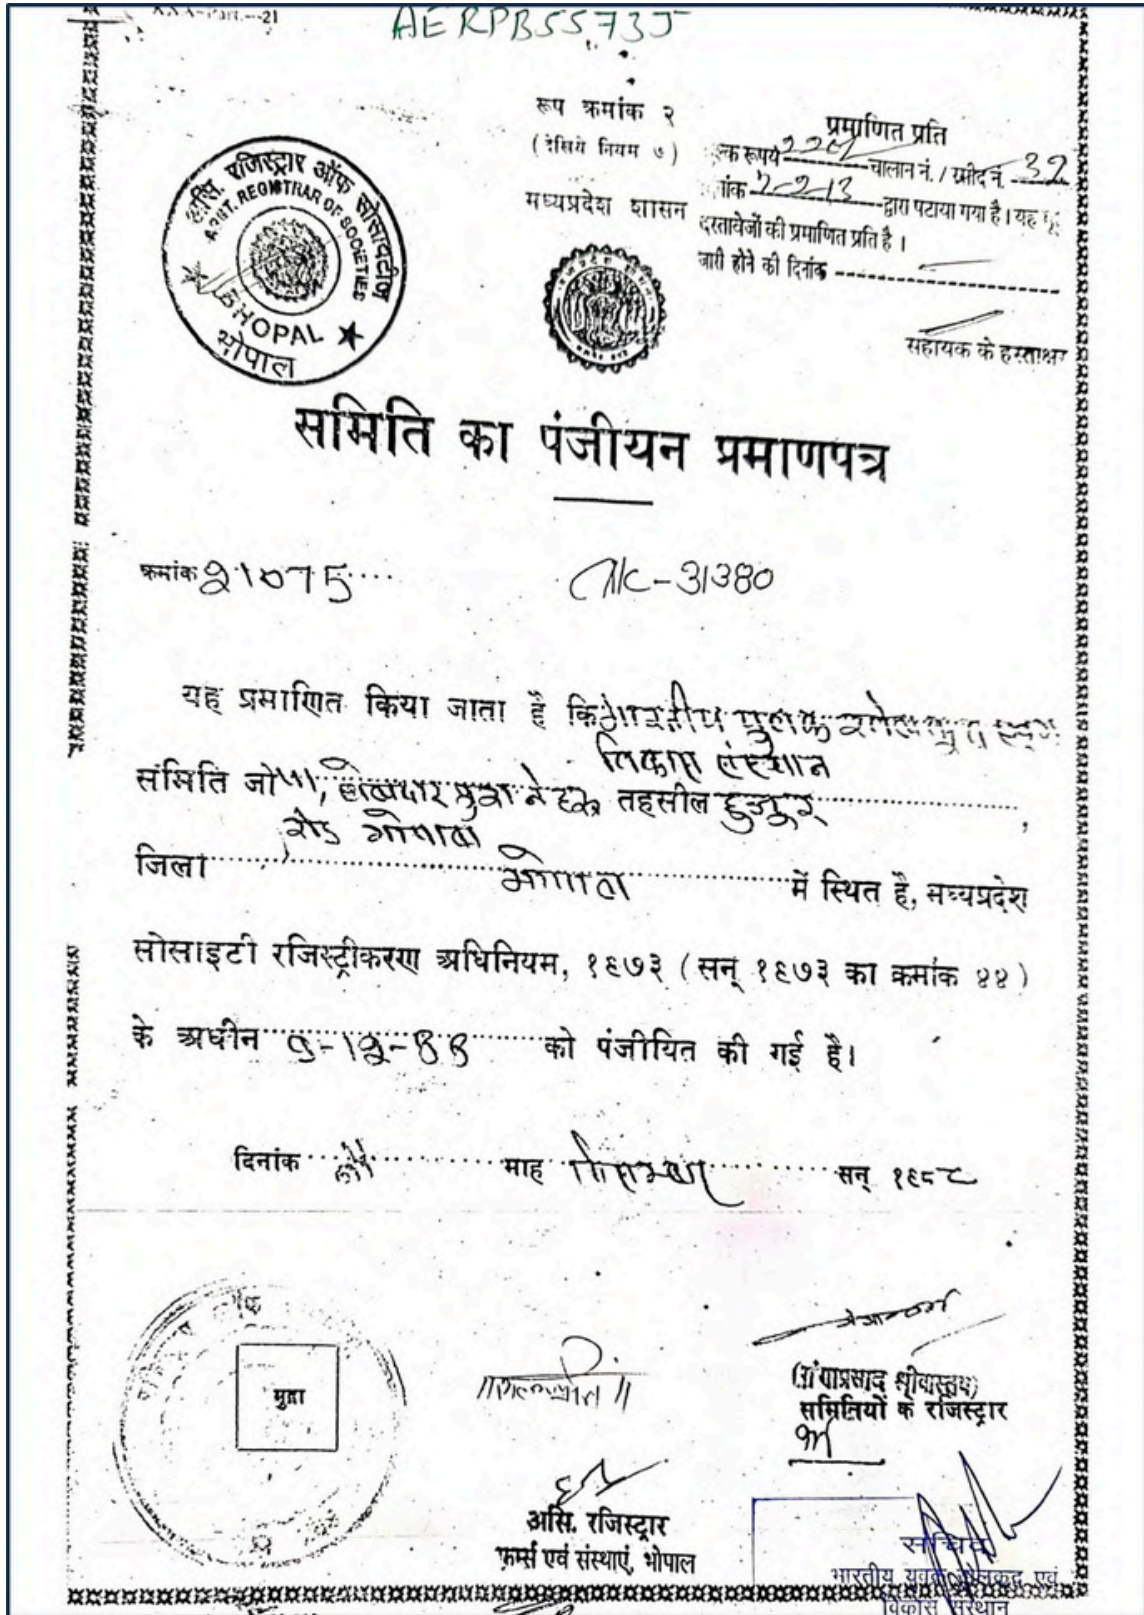 AERPB5573J
रूप क्रमांक २
(देखिये नियम ७)
मध्यप्रदेश शासन
प्रमाणित प्रति
रूपये चालान नं. / रसीद नं. 32
7-2-13 द्वारा पटाया गया है। यह
दस्तावेजों की प्रमाणित प्रति है।
जारी होने की दिनांक
सहायक के हस्ताक्षर
असि. रजिस्ट्रार ऑफ सोसायटीज
ASST. REGISTRAR OF SOCIETIES
BHOPAL
भोपाल
समिति का पंजीयन प्रमाणपत्र
क्रमांक 21075
31380
यह प्रमाणित किया जाता है कि भारतीय युवक खेलकूद एवं
विकास संस्थान
समिति जो तहसील हुजूर
रोड भोपाल
जिला भोपाल में स्थित है, मध्यप्रदेश
सोसाइटी रजिस्ट्रीकरण अधिनियम, १९७३ (सन् १९७३ का क्रमांक ४४)
के अधीन को पंजीयित की गई है।
दिनांक माह दिसम्बर सन् १९८८
मुद्रा
(गंगाप्रसाद श्रीवास्तव)
समितियों के रजिस्ट्रार
असि. रजिस्ट्रार
फर्म्स एवं संस्थाएं, भोपाल
सचिव
भारतीय युवक खेलकूद एवं
विकास संस्थान